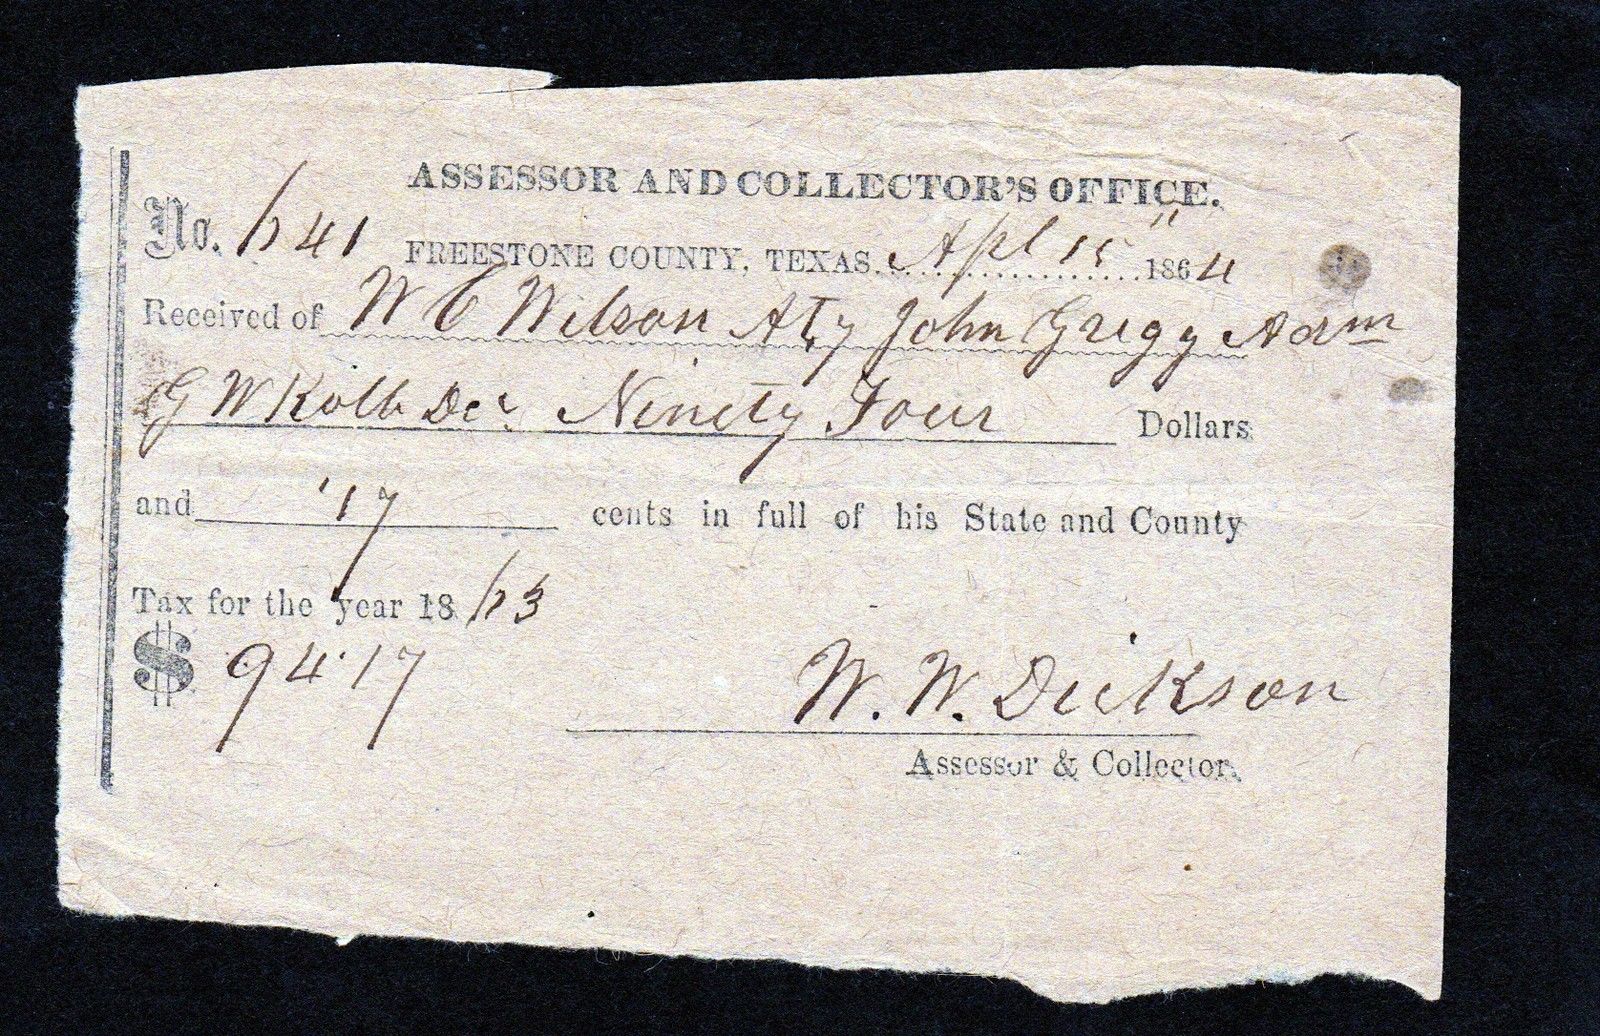 ASSESSOR AND COLLECTOR'S OFFICE.
No. 641 FREESTONE COUNTY, TEXAS. Apl 15" 1864
Received of W C Wilson Aty John Gregg Adm
G W Kolb Dec. Ninety Four Dollars
and '17 cents in full of his State and County
Tax for the year 1863
$ 94.17
W. W. Dickson
Assessor & Collector.